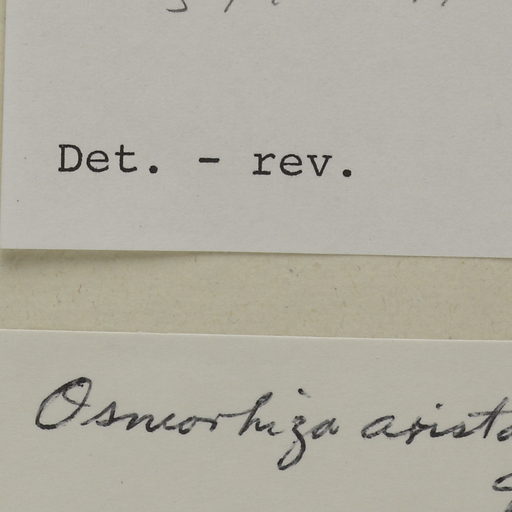 Det. - rev.
Osmorhiza arista